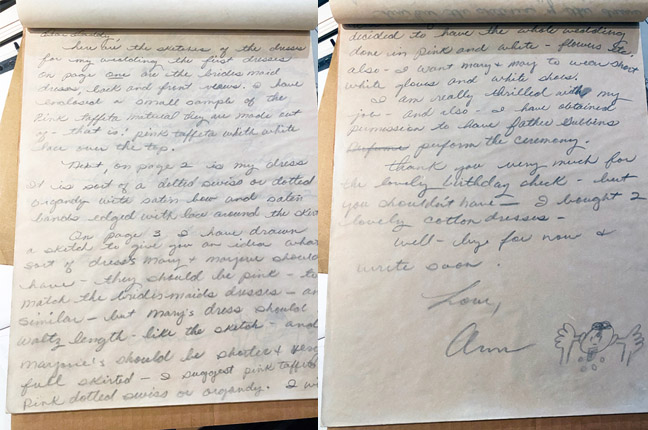 Dear Daddy,
Here are the sketches of the dresses
for my wedding the first dresses
on page one are the brides maid
dress, back and front views. I have
enclosed a small sample of the
Pink taffeta material they are made out
of - that is! pink taffeta with white
lace over the top.
Next, on page 2 is my dress
It is sort of a dotted swiss or dotted
organdy with satin bow and satin
bands edged with lace around the skirt
On page 3 I have drawn
a sketch to give you an idea what
sort of dresses Mary & Marjorie should
have - they should be pink - to
match the bridesmaids dresses - and
similar - but Mary's dress should
waltz length - like the sketch - and
Marjorie's should be shorter & very
full skirted - I suggest pink taffeta
Pink dotted swiss or organdy. I
decided to have the whole wedding
done in pink and white - flowers
also - I want mary & marj to wear short
white gloves and white shoes.
I am really thrilled with my
job - and also - I have obtained
permission to have father Gubbins
perform the ceremony.
Thank you very much for
the lovely birthday check - but
you shouldn't have - I bought 2
lovely cotton dresses -
Well - bye for now &
write soon.
Love,
Ann